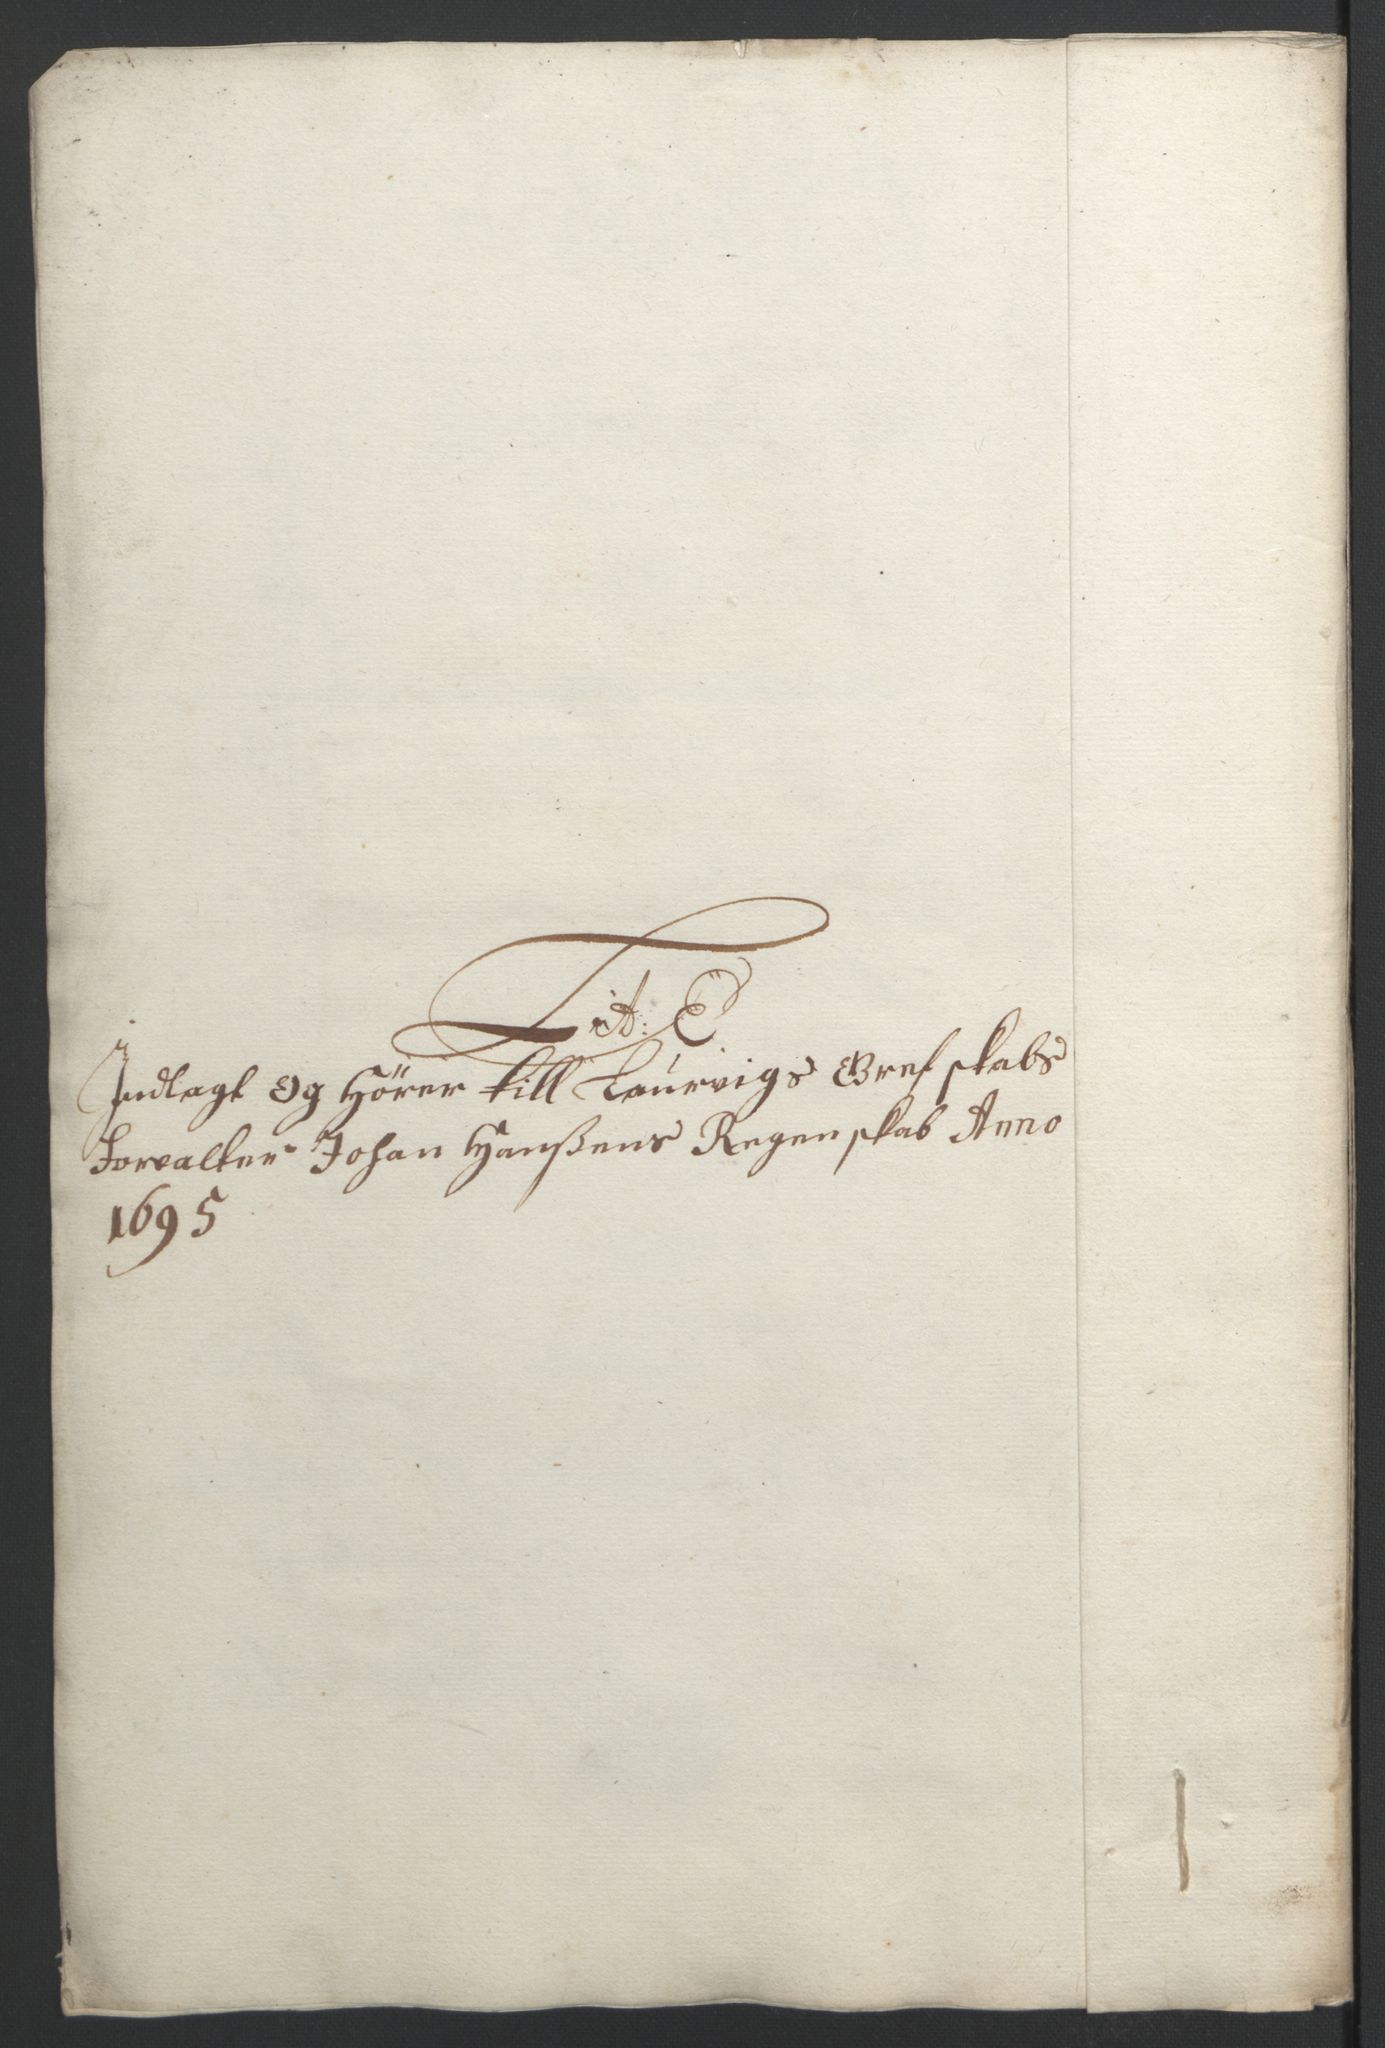 Lit: E
Indlagt Og Hörer till Laurvigs Grefskabs
Forvalter Johan Hanßens Regenskab Anno
1695